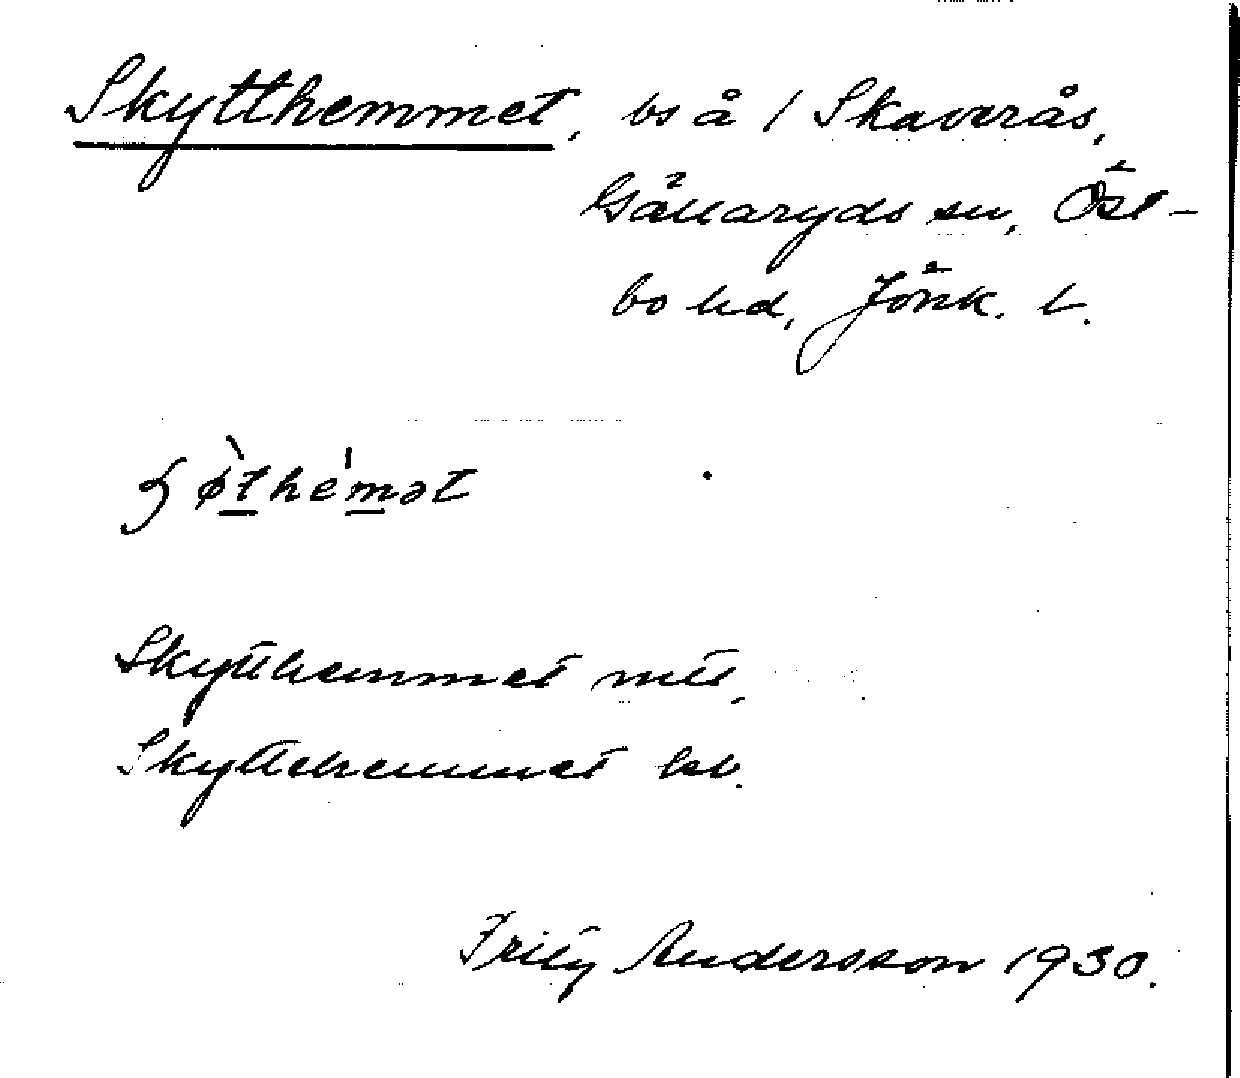 Skytthemmet, bs å 1 Skaverås,
Gällaryds sn, Öst-
bo hd, Jönk. l.
ɧø̀the'mət
Skytthemmet mtl,
Skyttehemmet bl.
Fritz Andersson 1930.